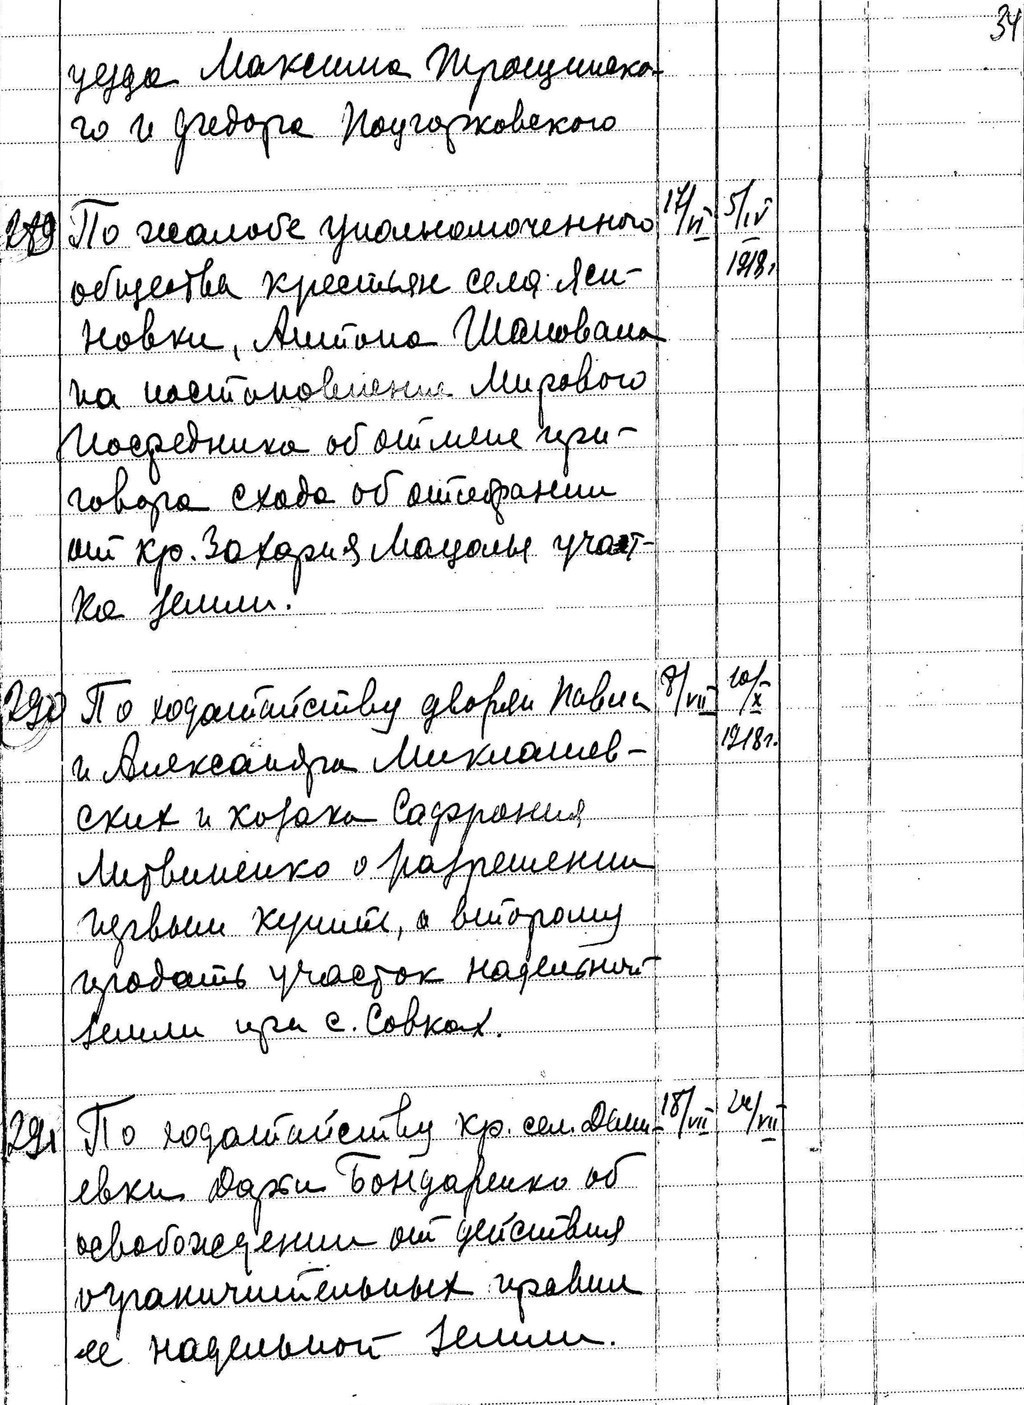 34
уезда Максима Трощинско-
го и Федора
289 По жалобе уполномоченного 17/VI 5/IV
общества крестьян села Яси- 1918г.
новки, Антона Шаповала
на постановление Мирового
Посредника об отмене при-
говора схода об отобрании
от кр. Захария Мацолы участ-
ка земли.
290 По ходатайству дворян Павла 8/VII 10/X
и Александра Миклашев- 1918г.
ских и козака Сафрония
Литвиненко о разрешении
первым купить, а второму
продать участок надельной
земли при с. Совках.
291 По ходатайству кр. сел. 18/VII 24/VII
евки Дарьи Бондаренко об
освобождении от действия
ограничительных правил
ее надельной земли.